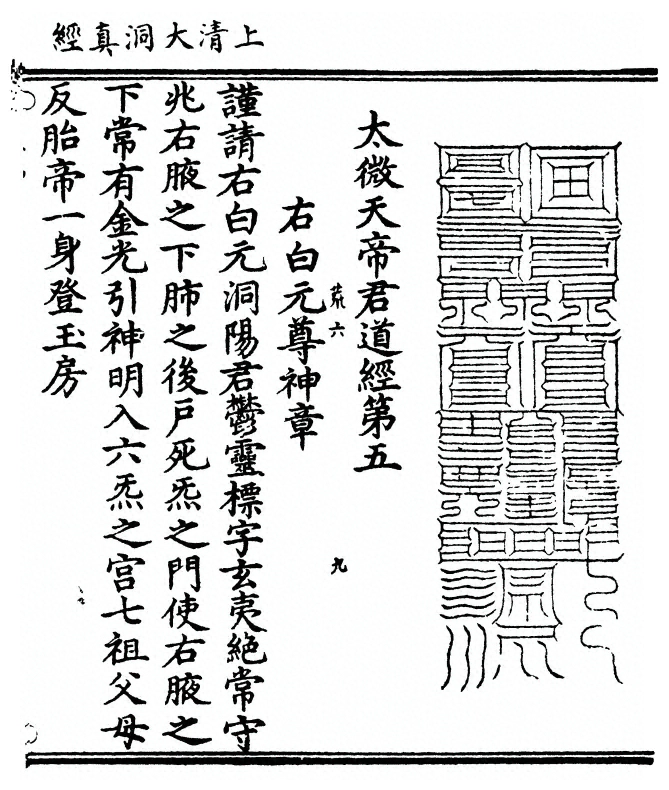 上清大洞真經
太微天帝君道經第五
右白元尊神章
荒六
九
謹請右白元洞陽君鬱靈標字玄夷絕常守
兆右腋之下肺之後戶死炁之門使右腋之
下常有金光引神明入六炁之宮七祖父母
反胎帝一身登玉房